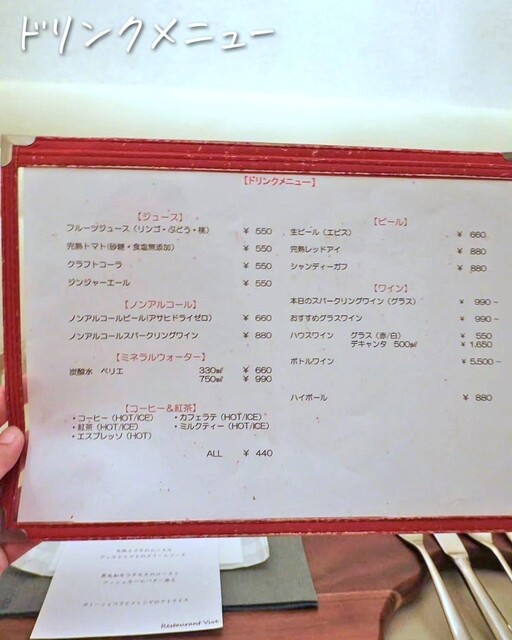 ドリンクメニュー
【ドリンクメニュー】
【ジュース】
フルーツジュース（リンゴ・ぶどう・桃） ￥ 550
完熟トマト(砂糖・食塩無添加) ￥ 550
クラフトコーラ ￥ 550
ジンジャーエール ￥ 550
【ノンアルコール】
ノンアルコールビール(アサヒドライゼロ) ￥ 660
ノンアルコールスパークリングワイン ￥ 880
【ミネラルウォーター】
炭酸水 ペリエ 330㎖ ￥ 660
750㎖ ￥ 990
【コーヒー＆紅茶】
・コーヒー（HOT/ICE） ・カフェラテ（HOT/ICE）
・紅茶（HOT/ICE） ・ミルクティー（HOT/ICE）
・エスプレッソ（HOT）
ALL ￥ 440
【ビール】
生ビール（エビス） ￥ 660
完熟レッドアイ ￥ 880
シャンディーガフ ￥ 880
【ワイン】
本日のスパークリングワイン（グラス） ￥ 990～
おすすめグラスワイン ￥ 990～
ハウスワイン グラス（赤/白） ￥ 550
デキャンタ 500㎖ ￥ 1,650
ボトルワイン ￥ 5,500～
ハイボール ￥ 880
Restaurant Vivt